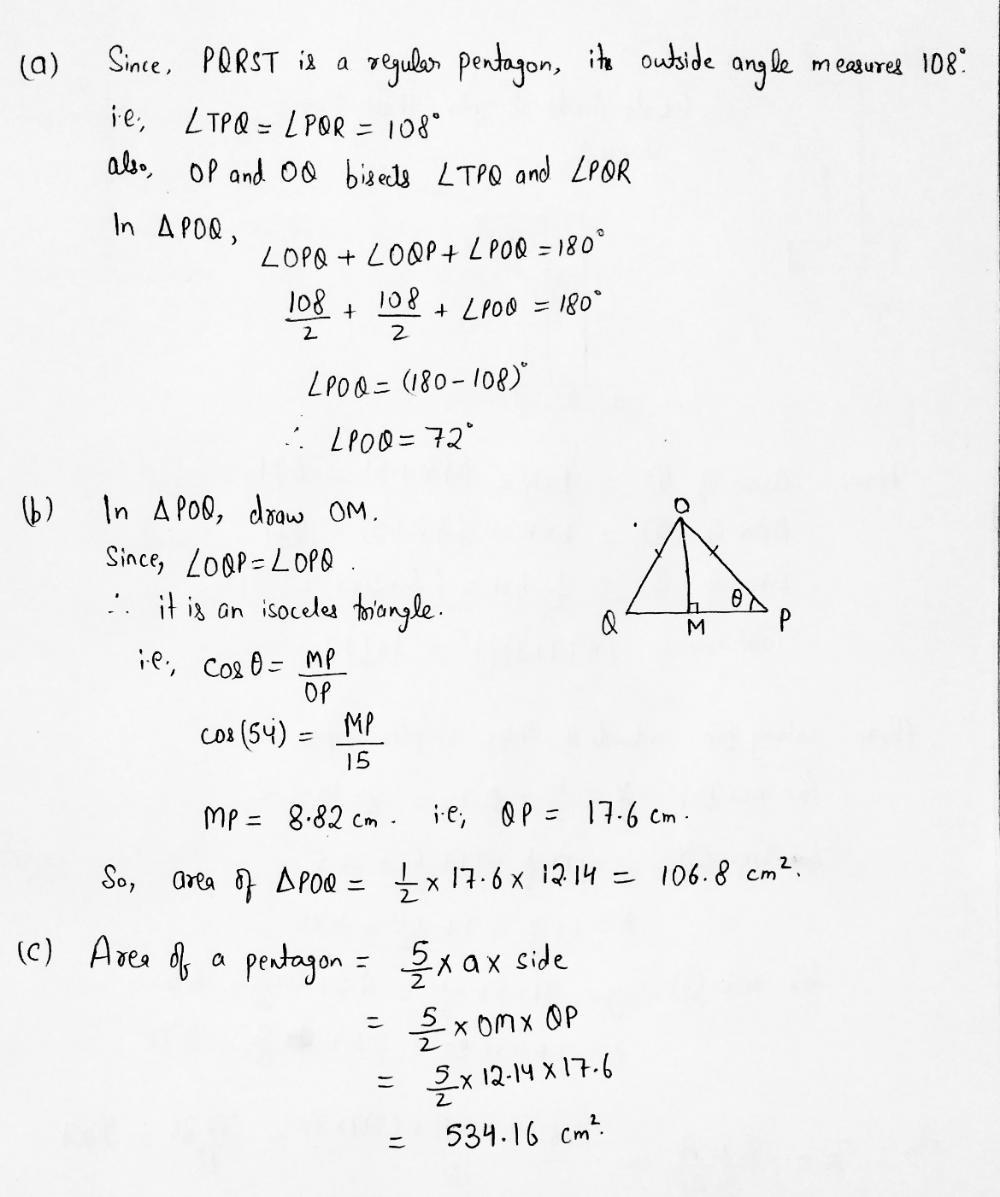 (a) Since, PQRST is a regular pentagon, its outside angle measures 108°.
i.e., ∠TPQ = ∠PQR = 108°
also, OP and OQ bisects ∠TPQ and ∠PQR
In △POQ,
∠OPQ + ∠OQP + ∠POQ = 180°
108/2 + 108/2 + ∠POQ = 180°
∠POQ = (180 - 108)°
∴ ∠POQ = 72°
(b) In △POQ, draw OM.
Since, ∠OQP = ∠OPQ.
∴ it is an isoceles triangle.
i.e., cos θ = MP/OP
cos (54) = MP/15
MP = 8.82 cm. i.e; QP = 17.6 cm.
O
θ
Q M P
So, area of △POQ = 1/2 × 17.6 × 12.14 = 106.8 cm².
(c) Area of a pentagon = 5/2 × a × side
= 5/2 × OM × QP
= 5/2 × 12.14 × 17.6
= 534.16 cm².